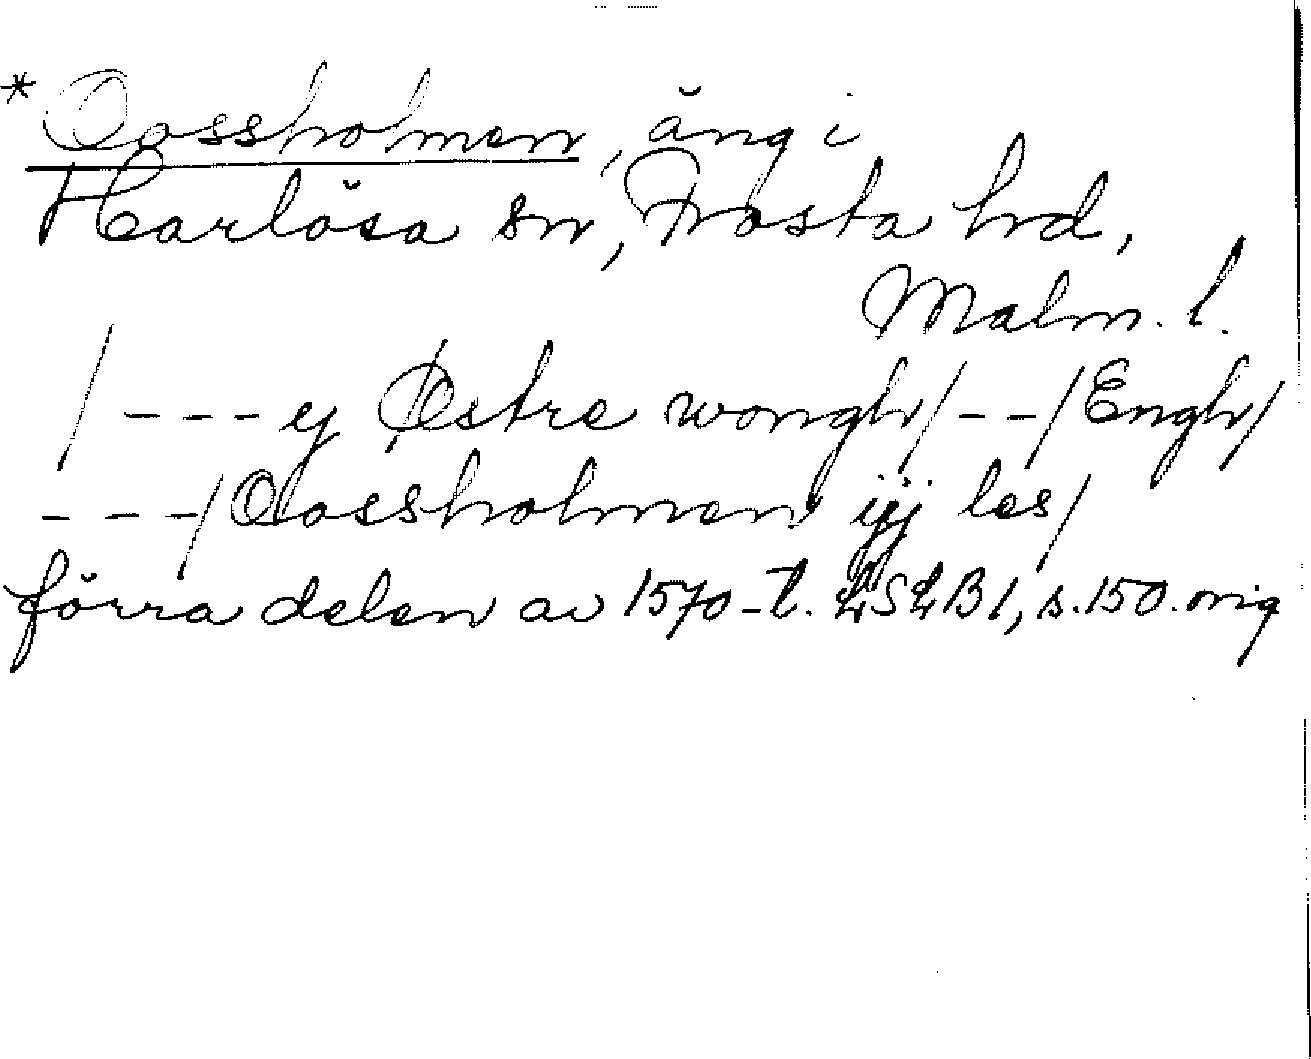 * Oossholmen, äng i
Harlösa sn, Frosta hd,
Malm. l.
/---ij Østre wongh/--/Engh/
---/Oossholmen iij les/
förra delen av 1570-t. LSLB1, s.150. orig